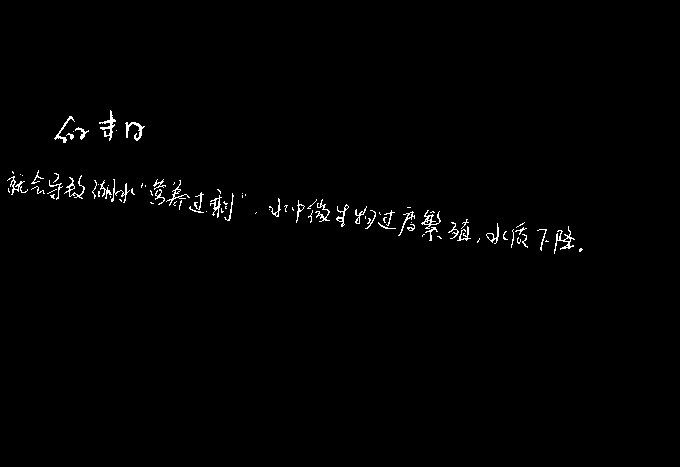 就会导致湖水“营养过剩”,水中微生物过度繁殖,水质下降.